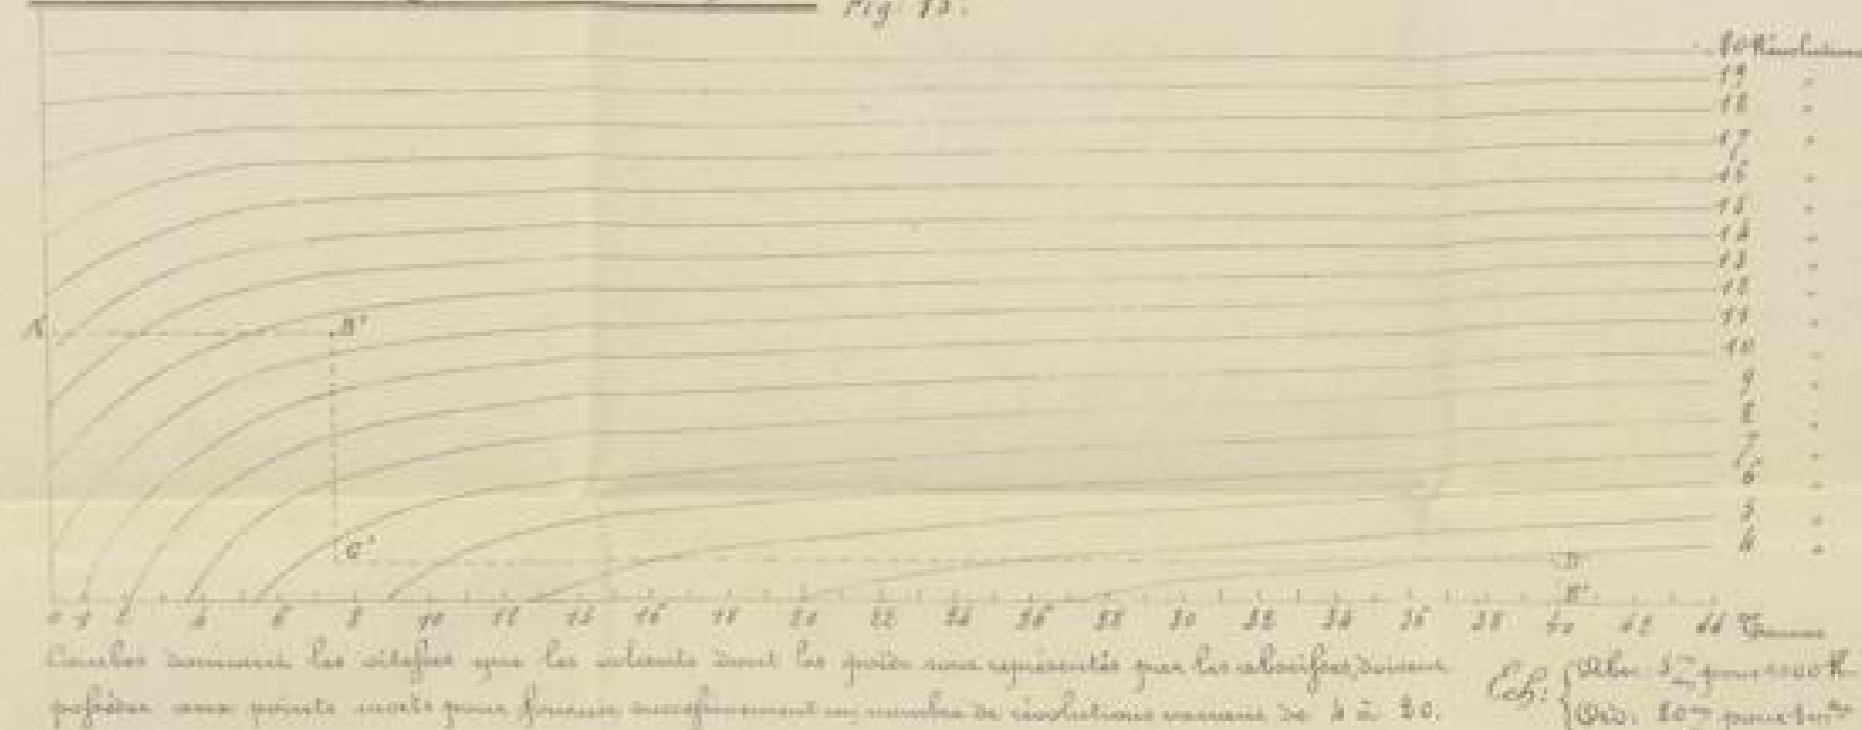 Fig. 13.
20 Révolutions
19 "
18 "
17 "
16 "
15 "
14 "
13 "
12 "
11 "
10 "
9 "
8 "
7 "
6 "
5 "
4 "
A' B'
C' D'
E'
0 1 2 4 6 8 10 12 14 16 18 20 22 24 26 28 30 32 34 36 38 40 42 44 Tonnes
Courbes donnant les vitesses que les volants dont les poids sont représentés par les abscisses, doivent
posséder aux points morts pour fournir successivement un nombre de révolutions variant de 4 à 20.
Ech: { Abs. pour 1000 K.
Ord. pour